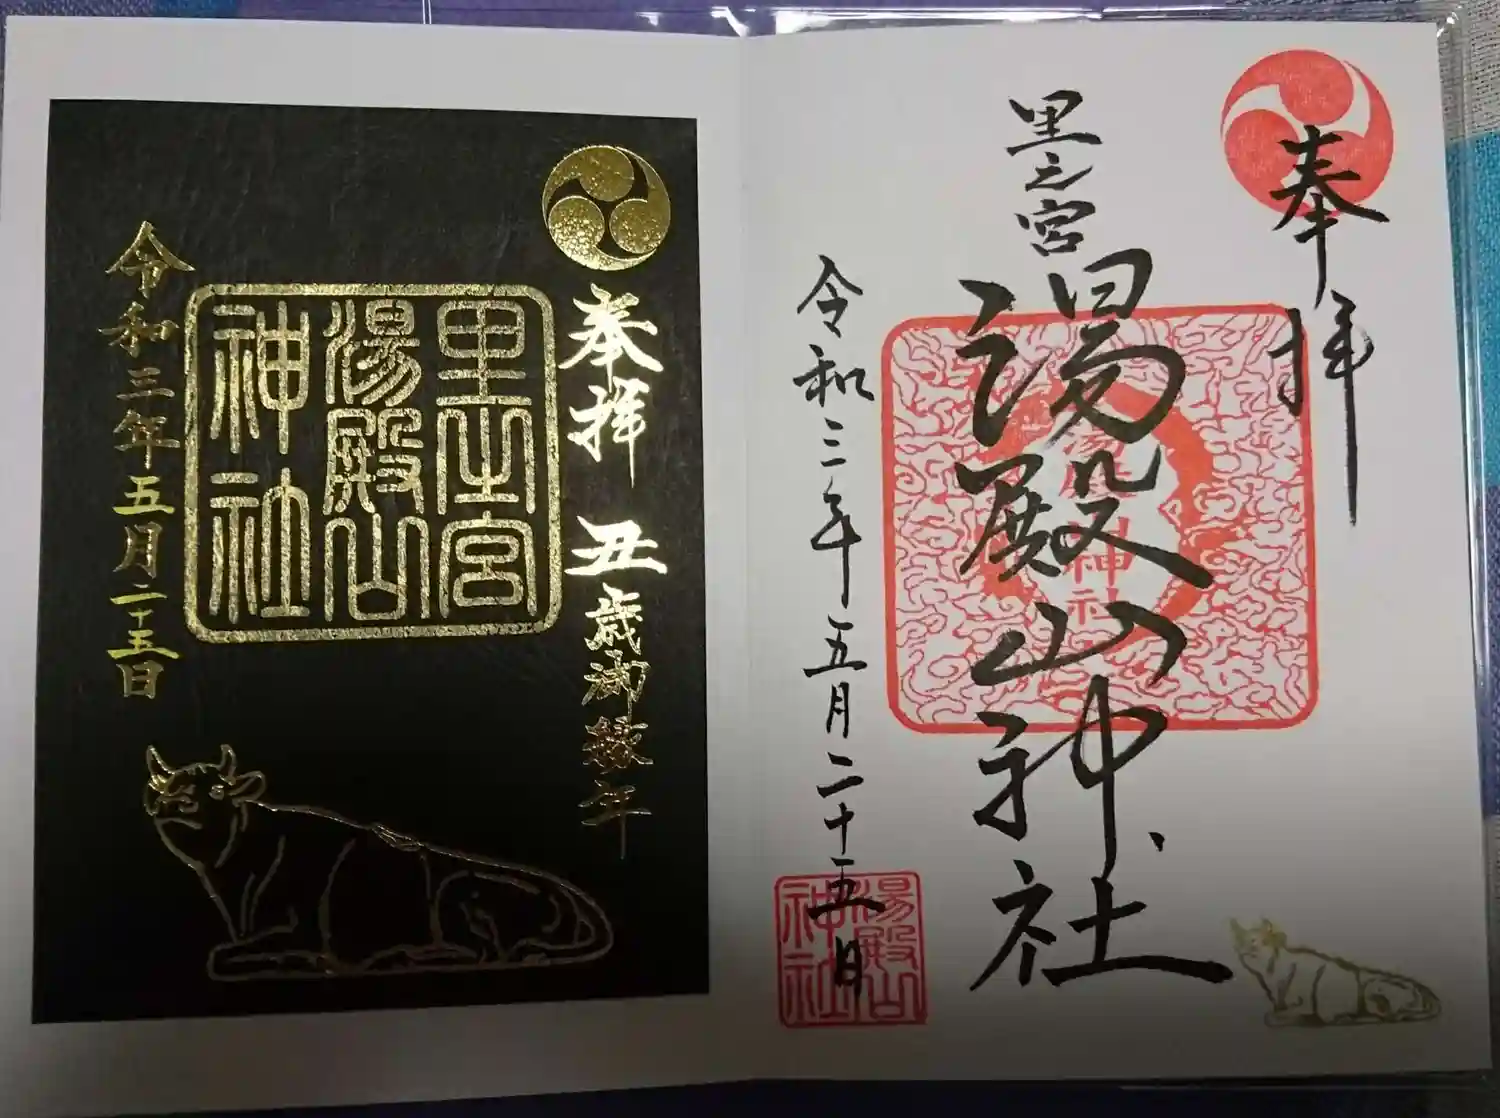 奉拝
里之宮
湯殿山神社
神社
令和三年五月二十五日
湯殿山
神社
奉拝 丑歳御縁年
里之宮
湯殿山
神社
令和三年五月二十五日